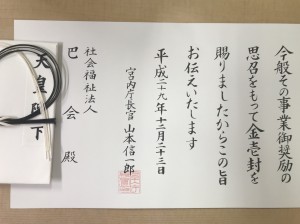 今般その事業御奨励の
思召をもって金壱封を
賜りましたからこの旨
お伝えいたします
平成二十九年十二月二十三日
宮内庁長官 山本信一郎
社会福祉法人
巴会殿
天皇陛下